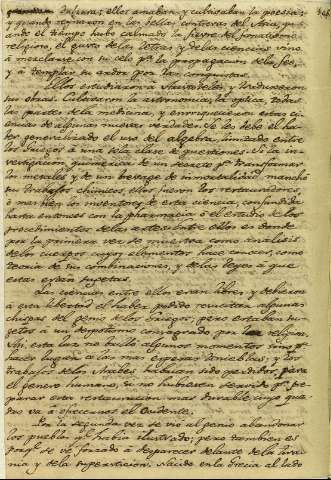 cultura: ellos amaban, y cultivaban la poesia;
y quando reinaron en las bellas comarcas del Asia, qu
ando el tiempo hubo calmado la fiebre del fanatismo
religioso, el gusto de las letras y de las ciencias vino
á mezclarse con su zelo pr. la propagacion de la fe,
y á templar su ardor por las conquistas.
Ellos estudiaron á Aristoteles y traduxeron
sus obras. Cultivaron la astronomia, la optica, todas
las partes de la medicina, y enrriquecieron estas ci
encias de algunas nuevas verdades. Se les debe el ha
ber generalizado el uso del algebra, limitado entre
los Griegos á una sola clase de questiones. Si la in
vestigacion quimerica de un secreto pa. transformar
los metales y de un brebage de inmortalidad manchó
sus trabajos chimicos, ellos fueron los restauradores,
ó mas bien los inventores de esta ciencia, confundida
hasta entonces con la pharmacia ó el estudio de los
procedimientos de las artes. Entre ellos es donde
por la primera vez se muestra como analisis
de los cuerpos cuyos elementos hace conocer, como
teoria de sus combinaciones, y de las leyes á que
estas están sugetas.
Las ciencias entre ellos eran libres, y debieron
á esta libertad el haber podido resucitar algunas
chispas del genio de los Griegos; pero estaban su-
getos á un despotismo consagrado por la religion.
Asi, esta luz no brilló algunos momentos sino pa.
hacer lugar á las mas espesas tinieblas; y los
trabajos de los Arabes habrian sido perdidos para
el genero humano, si no hubiesen servido pa. pre
parar esta restauracion mas durable cuyo qua
dro va á ofrecernos el Occidente.
Por la segunda vez se vió al genio abandonar
los pueblos qe. habia ilustrado; pero tambien es
porqe. se ve forzado á desaparecer delante de la tira
nia y de la supersticion. Nacido en la Grecia al lado